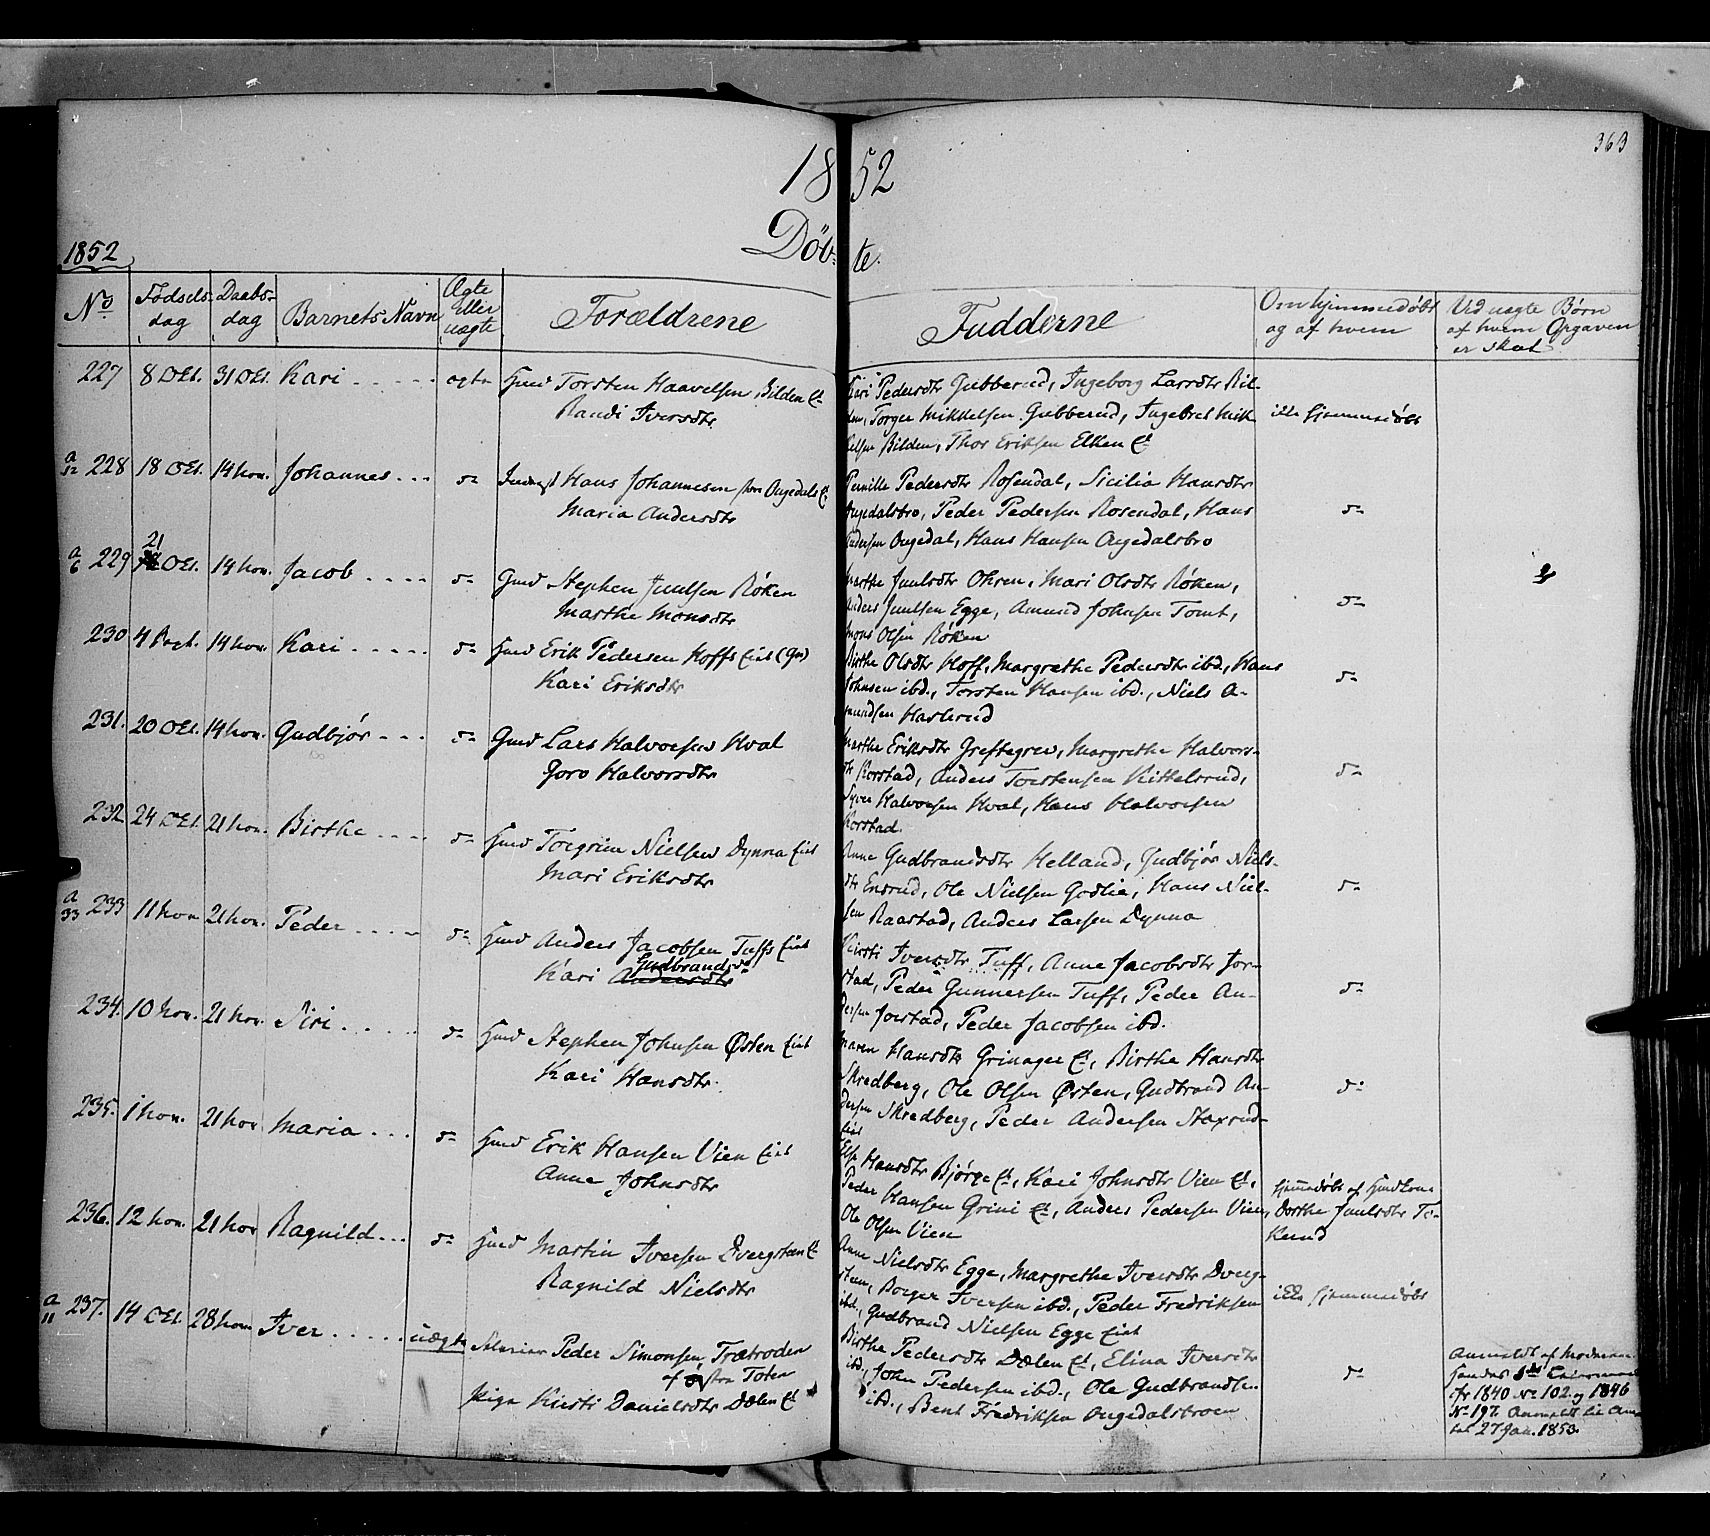 363
1852
Døbte.
1852
No
Fødsels-
dag
Daabs-
dag
Barnets Navn
Ægte
Eller
uægte
Forældrene
Fadderne
Om hjemmedøbt
og af hvem
Ved uægte Børn
af hvem Opgaven
er skeet
227 8 Oct. 31 Oct. Kari ægte Gmd Torsten Haavelsen Bilden
Randi Iversdtr
Kari Pedersdtr Gubberud, Ingeborg Larsdtr Bil-
den, Torger Mikkelsen Gubberud, Ingebret Mik-
kelsen Bilden, Thor Eriksen Elken
ikke hjemmedøbt
228 18 Oct. 14 Nov. Johannes do Hans Johannesen Augedals
Maria Andersdtr
Pernille Pedersdtr Rosendal, Sicilia Hansdtr
Augedalsbro, Peder Pedersen Rosendal, Hans
Andersen Augedal, Hans Hansen Augedalsbro
do
229 21 Oct. 14 Nov. Jacob do Gmd Stephen Juulsen Røken
Marthe Monsdtr
Marthe Juulsdtr Ohren, Mari Olsdtr Røken,
Anders Juulsen Egge, Amund Johnsen Tomt,
Mons Olsen Røken
do
230 4 Sept. 14 Nov. Kari do Gmd Erik Pedersen Hoffs eiet (Gr)
Kari Eriksdtr
Birthe Olsdtr Hoff, Margrethe Pedersdtr ibd., Hans
Johnsen ibd., Torsten Hansen ibd., Niels A-
mundsen Haslerud
do
231. 20 Oct. 14 Nov. Gudbjør do Gmd Lars Halvorsen Hval
Goro Halvorsdtr
Marthe Eriksdtr Greftegrev, Margrethe Halvors-
dtr Korstad, Anders Torstensen Kittelsrud,
Syver Halvorsen Hval, Hans Halvorsen
Korstad.
do
232 24 Oct. 21 Nov. Birthe do Hmd Torgrim Nielsen Dynna eiet
Mari Eriksdtr
Anne Gudbrandsdtr Helland, Gudbjør Niels-
dtr Ensrud, Ole Nielsen Godlie, Hans Niel-
sen Raastad, Anders Larsen Dynna
do
233 11 Nov 21 Nov. Peder do Hmd Anders Jacobsen Tuffs eiet
Gudbrandsdtr
Kari Andersdtr
Kirsti Iversdtr Tuff, Anne Jacobsdtr Jor-
stad, Peder Gunnersen Tuff, Peder An-
dersen Jorstad, Peder Jacobsen ibd.
do
234. 10 Nov. 21 Nov. Siri do Hmd Stephen Johnsen Østen eiet
Kari Hansdtr.
Maren Hansdtr Grinager, Birthe Hansdtr
Skredberg, Ole Olsen Østen, Gudbrand An-
dersen Skredberg, Peder Andersen Staxrud-
eiet
do
235. 1 Nov. 21 Nov Maria do Hmd Erik Hansen Vien eiet
Anne Johnsdtr
Else Hansdtr Bjørge, Kari Johnsdtr Vien,
Peder Hansen Grini, Anders Pedersen Vien,
Ole Olsen Vien
hjemmedøbt af Hmdkone
Dorthe Juulsdtr To-
kerud
236. 12 Nov. 21 Nov Ragnild do Hmd Martin Iversen Dvergsten
Ragnild Nielsdtr
Anne Nielsdtr Egge, Margrethe Iversdtr Dverg-
sten, Borger Iversen ibd., Peder Fredriksen
ibd., Gudbrand Nielsen Egge eiet
ikke hjemmedøbt
237. 14 Oct. 28 Nov Iver uægte Peder Simonsen Trætroden
fra Toten
Pige Kirsti Danielsdtr Dælen
Birthe Pedersdtr Dælen, Elina Iversdtr
ibd., John Pedersen ibd., Ole Gudbrandsen
ibd., Bent Fredriksen Augedalsbroen
do
Anmeldt af Moderen
fr 1840 No 102 og 1846
No 197. Anmeldt til Am-
tet 27 Jan. 1853.